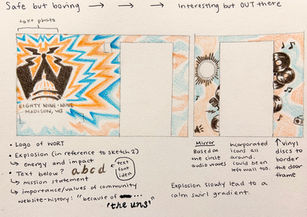 Safe but boring → → → Interesting but OUT there
text photo
EIGHTY NINE-NINE
MADISON, WI
• Logo of WORT
• Explosion (in reference to sketch 2)
↳ energy and impact
• Text below? abcd ← text font idea
↳ mission statement
↳ importance/values of community
website-history: "because of
"the uns"
Mirror
Based on
the circle
audio waves
Incorporated
icons all
around.
could be on
left wall too
↑ vinyl
discs to
border the
door frame
Explosion slowly lead to a
calm swirl gradient.